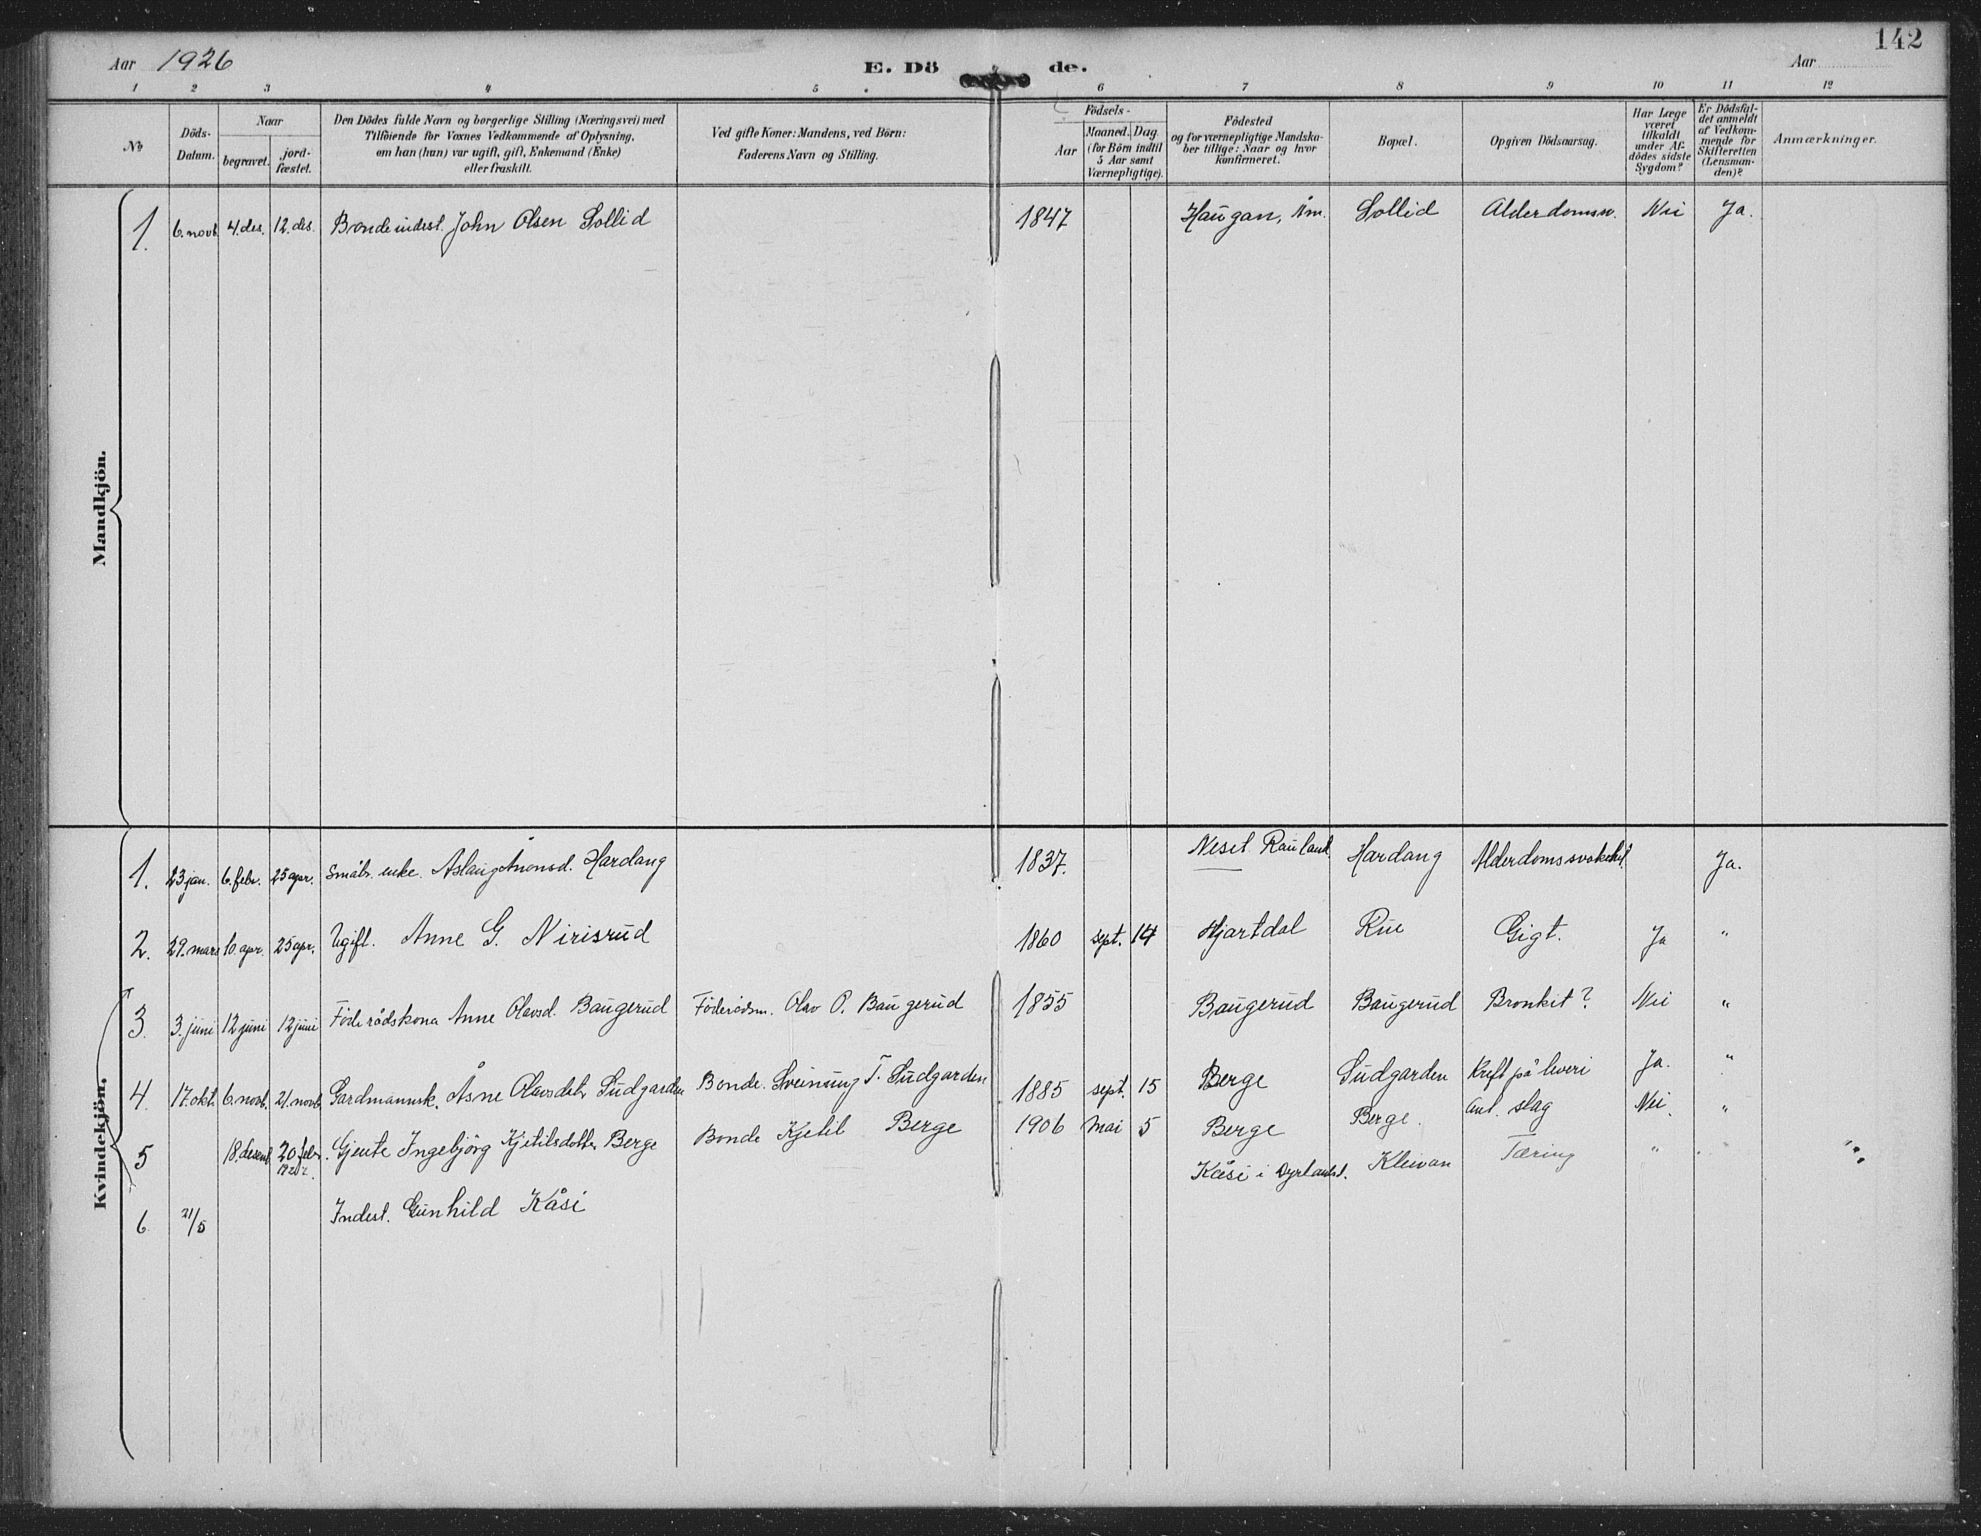 142
Aar 1926 E. Dö de. Aar
1 2 3 4 5 6 7 8 9 10 11 12
No
Döds-Datum.
Naar
begravet.
jord-fæstet.
Den Dödes fulde Navn og borgerlige Stilling (Næringsvei) med
Tilföiende for Voxnes Vedkommende af Oplysning,
om han (hun) var ugift, gift, Enkemand (Enke)
eller fraskilt.
Ved gifte Koner: Mandens, ved Börn:
Faderens Navn og Stilling.
Födsels-
Aar
Maaned. Dag
(for Börn indtil
5 Aar samt
Værnepligtige).
Födested
og for værnepligtige Mandska-
ber tillige: Naar og hvor
konfirmeret.
Bopæl.
Opgiven Dödsaarsag.
Har Læge
været
tilkaldt
under Af-
dödes sidste
Sygdom?
Er Dödsfal-
det anmeldt
af Vedkom-
mende for
Skifteretten
(Lensman-
den)?
Anmærkninger.
Mandkjön.
1. 6. novb. 4. des. 12. des. Bonde indest. John Olsen Sollid 1847 Haugan, Åm. Sollid Alderdomsv. Nei Ja.
Kvindekjön.
1. 23 jan. 6. febr. 25 apr. Småbr. enke. Aslaug Aanonsd. Hardang 1837. Neset Rauland Hardang Alderdomssvakehet Ja.
2. 29. mars 10 apr. 25 apr. Ugift. Anne G. Nirisrud 1860 sept. 14 Hjartdal Rue Gigt. Ja "
3. 3. juni 12 juni 12 juni Föderådskona Anne Olavsd. Baugerud Föderådsm. Olav O. Baugerud 1855 Baugerud Baugerud Bronkit? Nei "
4. 17. okt. 6. novb. 21. novb. Gardmannsk. Åsne Olavsdtr Sudgarden Bonde. Sveinung T. Sudgarden 1885 sept. 15 Berge Sudgarden Kreft på leveri Ja. "
5 18. desemb. 20 febr. 1927. Gjente Ingebjörg Kjetilsdotter Berge Bonde Kjetil Berge 1906 Mai 5 Berge Berge. Ant. slag Nei. "
6 21/5 Indest. Gunhild Kåsi Kåsi i Dyrlandsd. Kleivan Tæring " "